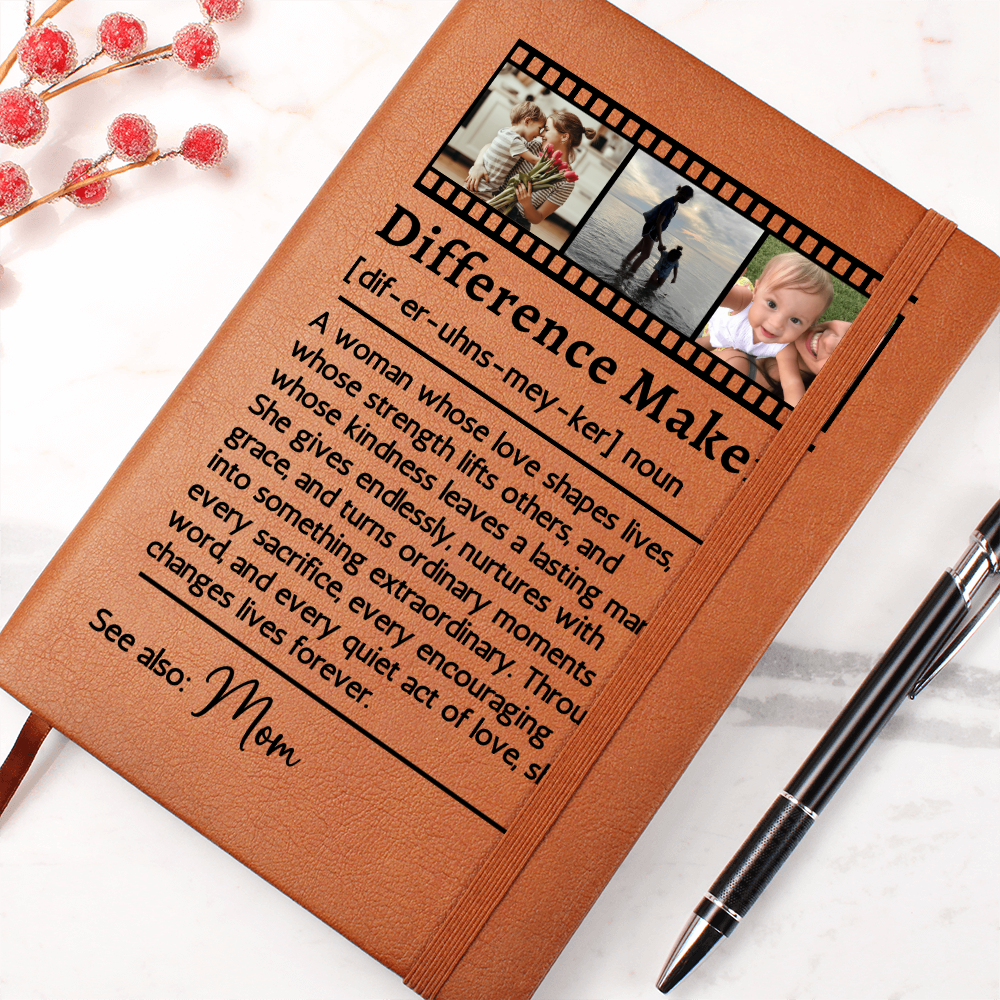 Difference Make
[dif-er-uhns-mey-ker] noun
A woman whose love shapes lives,
whose strength lifts others, and
whose kindness leaves a lasting mar
She gives endlessly, nurtures with
grace, and turns ordinary moments
into something extraordinary. Throu
every sacrifice, every encouraging
word, and every quiet act of love, sh
changes lives forever.
See also: Mom